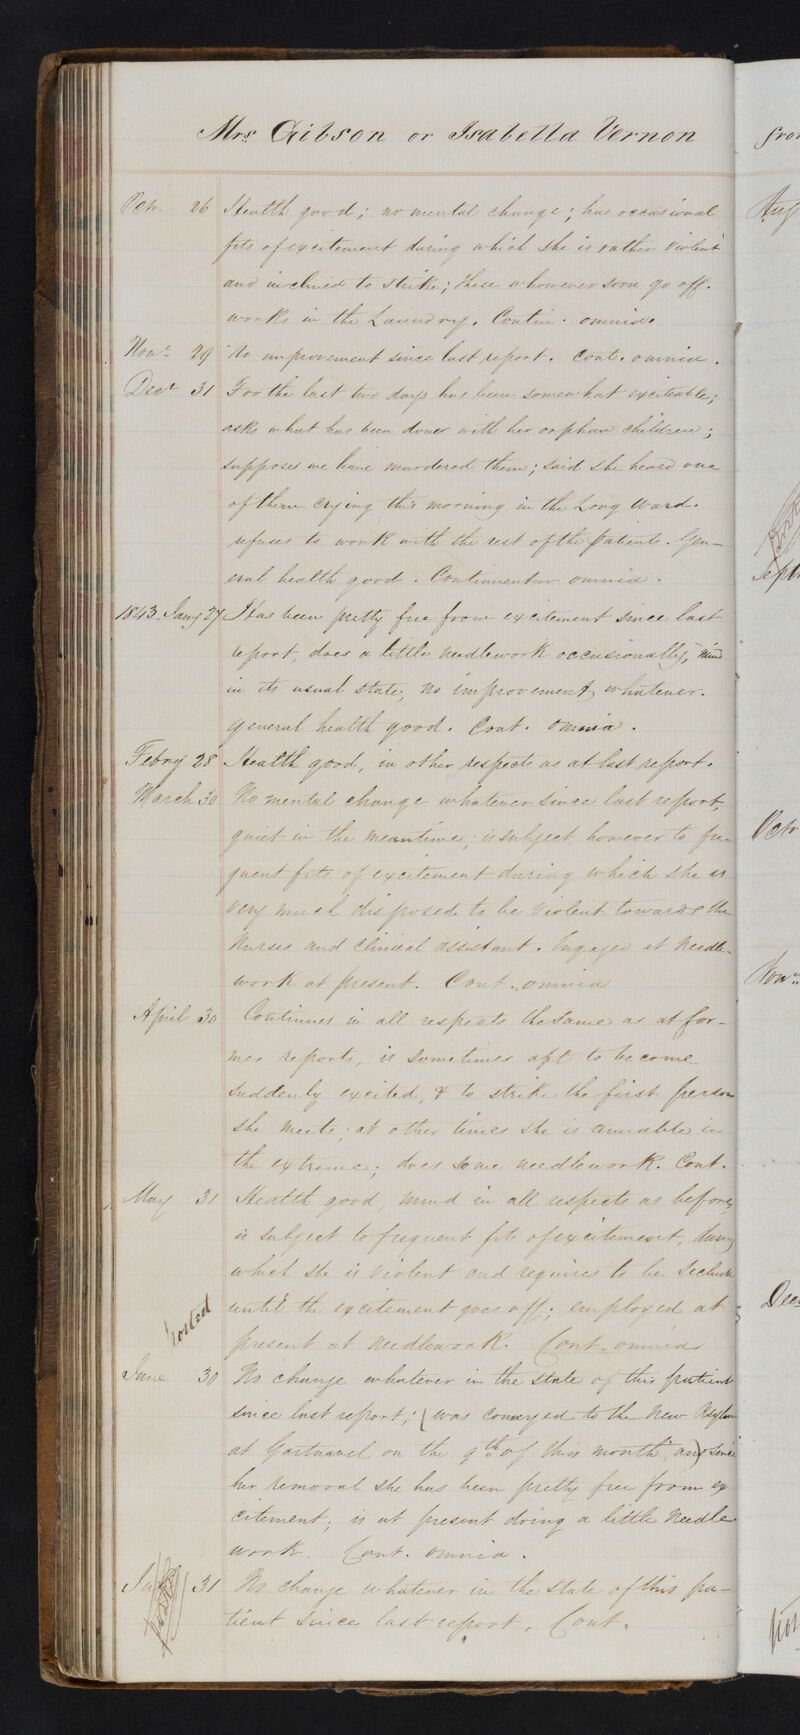 Mrs. Gibson or Isabella Vernon
Octr. 26 Health good; no mental change; has occasional
fits of excitement during which she is rather violent
and inclined to strike; these however soon go off.
works in the Laundry. Contin. omnia.
Novr. 29 No improvement since last report. Cont. omnia.
Decr 31 For the last two days has been somewhat exciteable;
asks what has been done with her orphan children;
supposes we have murdered them; said she heard one
of them crying this morning in the Long Ward.
refuses to work with the rest of the patients. Gen-
eral health good. Continuentur omnia.
1843. Jany 27 Has been pretty free from excitement since last
report, does a little needlework occasionally, mind
in its usual state, no improvement whatever.
general health good. Cont. omnia.
Febry 28 Health good, in other respects as at last report.
March 30 No mental change whatever since last report,
quiet in the meantime; is subject, however to fre-
quent fits of excitement during which she is
very much disposed to be violent towards the
Nurses and Clinical assistant. Engaged at needle-
work at present. Cont. omnia
April 30 Continues in all respects the same as at for-
mer reports, is sometimes apt to become
suddenly excited, & to strike the first person
she meets; at other times she is amiable in
the extreme; does some needlework. Cont.
May 31 Health good, mind in all respects as before,
is subject to frequent fits of excitement, during
which she is violent and requires to be seclude
until the excitement goes off; employed at
Posted
present at needlework. Cont. omnia
June 30 No change whatever in the state of this patient
since last report; (was conveyed to the New Asylum
at Gartnavel on the 9th of this month and) since
her removal she has been pretty free from ex
citement; is at present doing a little needle
work. Cont. omnia.
31 No change whatever in the state of this pa-
tient since last report. Cont.
Posted
from
Aug
Sept
Octr
Novr.
Dec